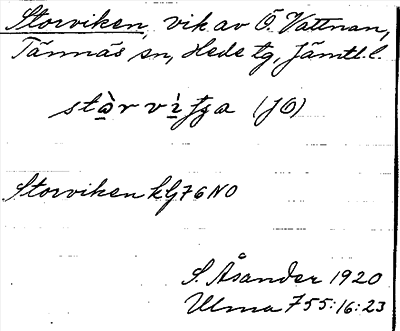 Storviken, vik av Ö. Vattnan,
Tännäs sn, Hede tg, Jämtl. l.
(JÖ)
Storviken kG76NO
S. Åsander 1920
Ulma 755:16:23